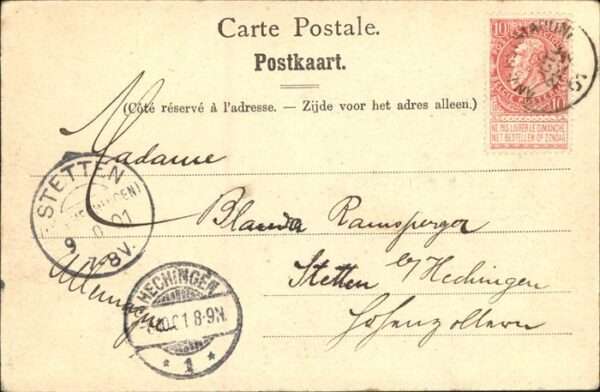 Carte Postale.
Postkaart.
(Côté réservé à l'adresse. — Zijde voor het adres alleen.)
10
10
NE PAS LIVRER LE DIMANCHE
NIET BESTELLEN OP ZONDAG
Madame
Blanda Ramsperger
Stetten b/Hechingen
Hohenzollern
Allemagne
STETTEN
8V.
HECHINGEN
01 8-9N.
* 1 *